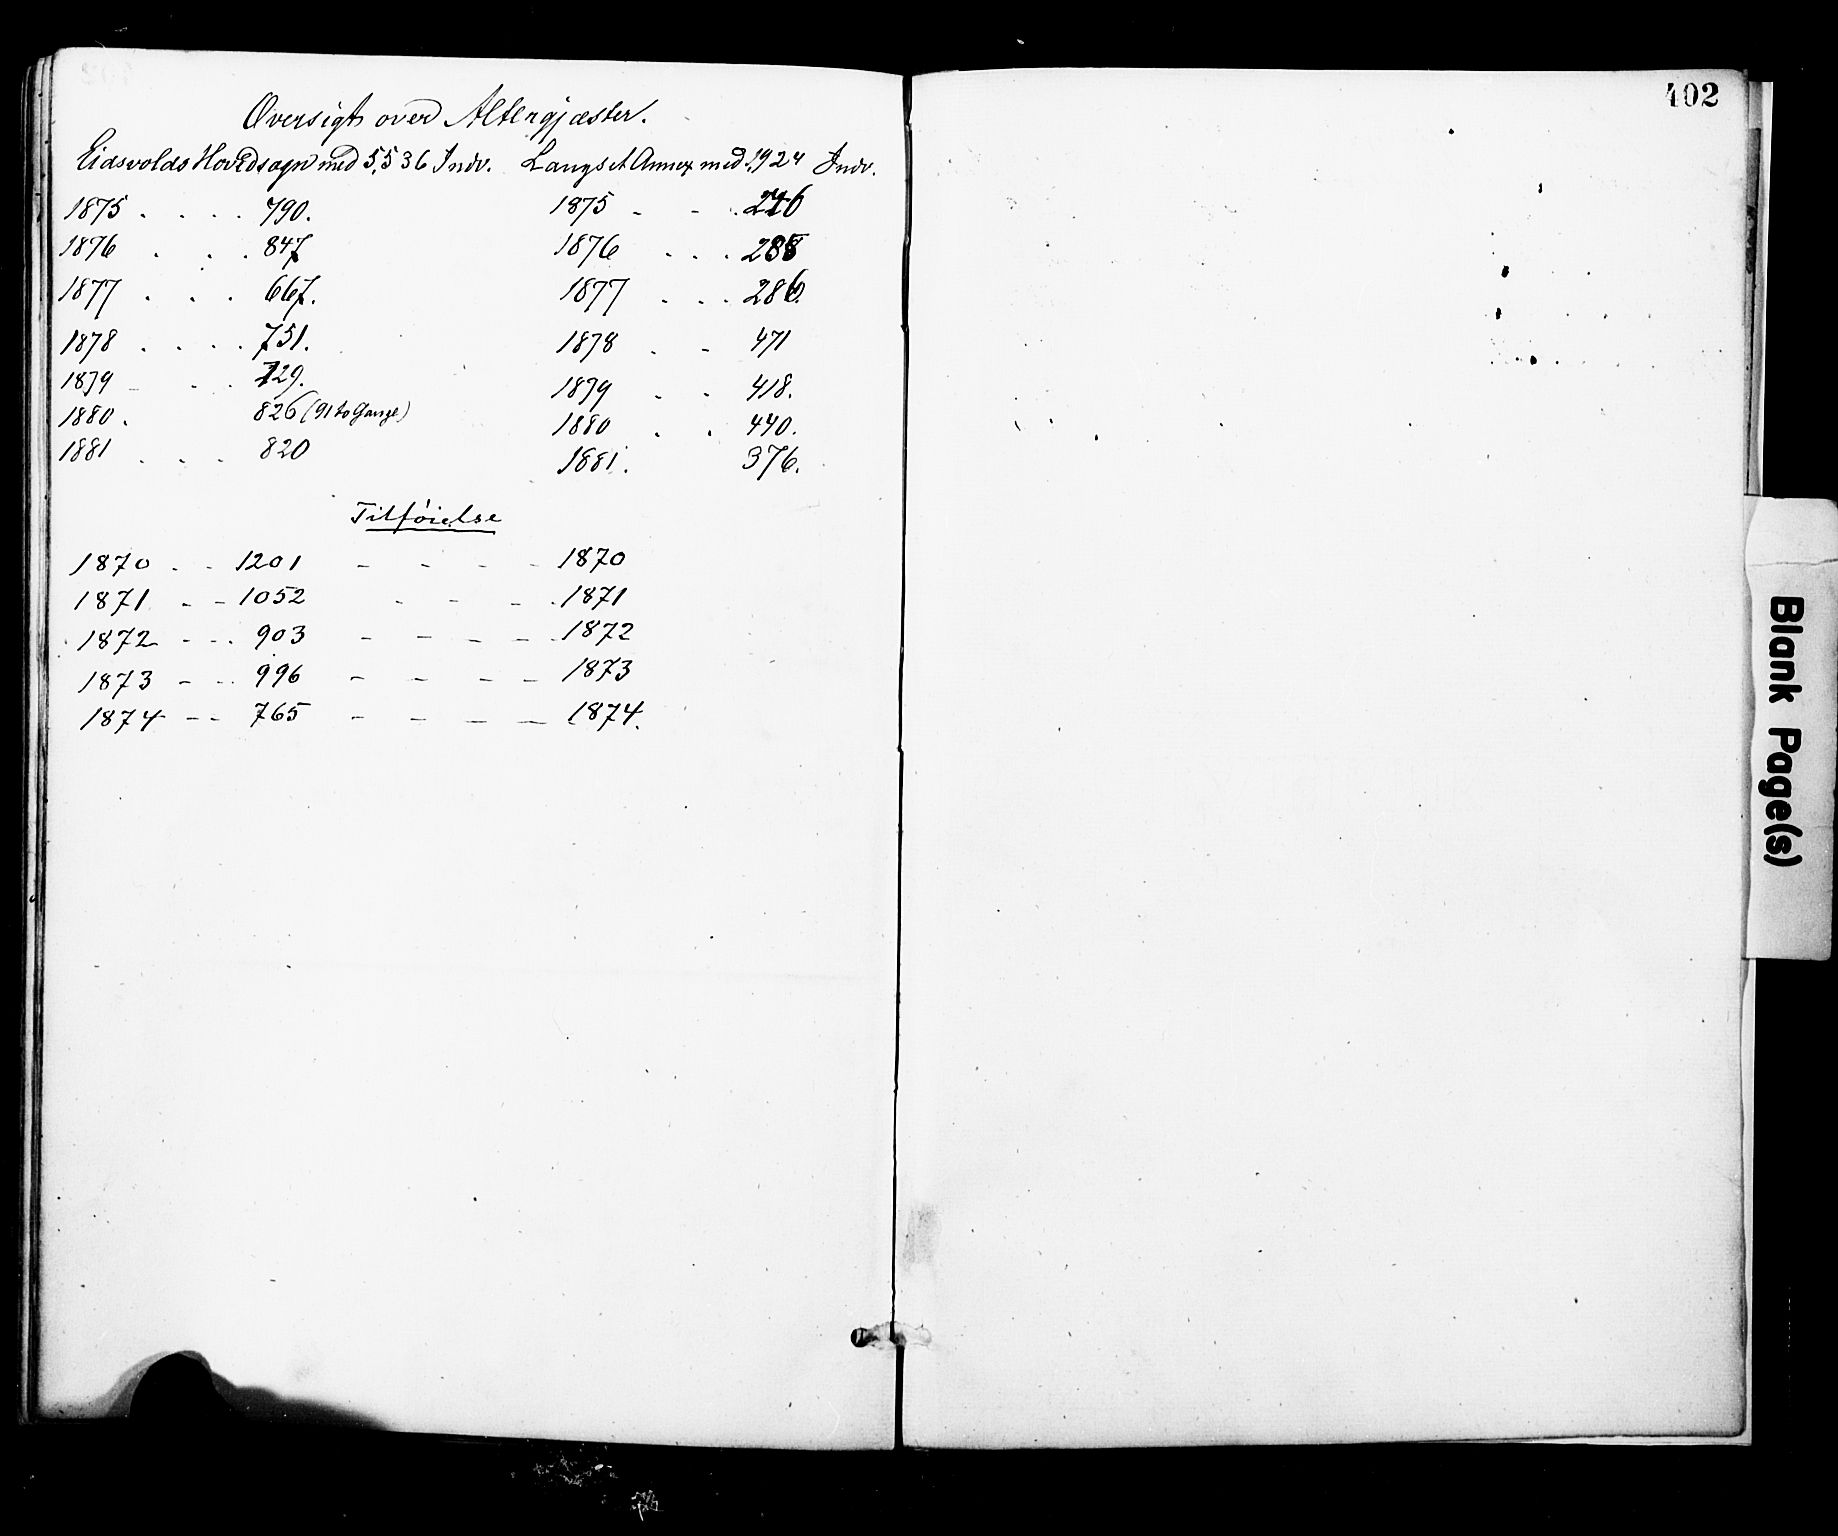 Oversigt over Altergjæster.
Eidsvolds Hovedsogn med 5,536 Indv. Langset Annex med 1,924 Indv.
1875 . . . . 790. 1875 - - . 
1876 . . . 847 1876 . . . 
1877 . . . 667. 1877 . . . 286.
1878 . . . . 751. 1878 . - 471
1879 - . . 729. 1879 . . 418.
1880 . 826 (91 to Gange) 1880 . . 440.
1881 . . . 820 1881. 376.
Tilføielse
1870 . - 1201 - - - - 1870
1871 - - 1052 - - - . 1871
1872 - - . 903 - - - - . 1872
1873 - - . 996 - - - - 1873
1874 - - 765 - - - - 1874.
402
Blank Page(s)